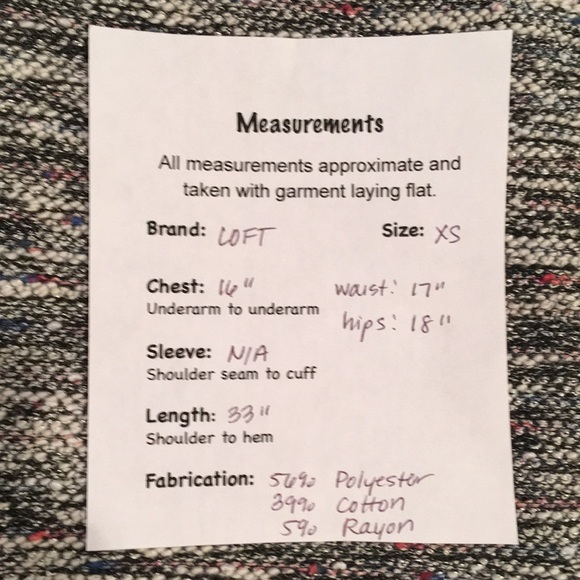 Measurements
All measurements approximate and
taken with garment laying flat.
Brand: LOFT Size: XS
Chest: 16" waist: 17"
Underarm to underarm
hips: 18"
Sleeve: N/A
Shoulder seam to cuff
Length: 33"
Shoulder to hem
Fabrication: 56% Polyester
39% Cotton
5% Rayon